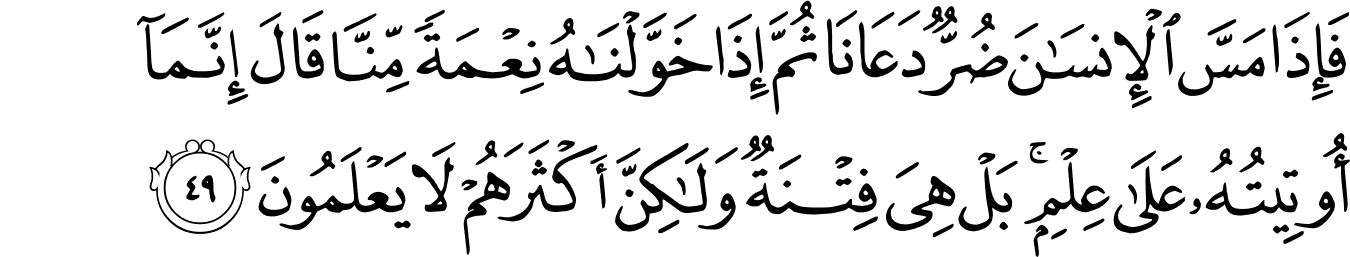 فَإِذَا مَسَّ ٱلْإِنسَـٰنَ ضُرٌّ دَعَانَا ثُمَّ إِذَا خَوَّلْنَـٰهُ نِعْمَةً مِّنَّا قَالَ إِنَّمَآ
أُوتِيتُهُۥ عَلَىٰ عِلْمٍۭ ۚ بَلْ هِىَ فِتْنَةٌ وَلَـٰكِنَّ أَكْثَرَهُمْ لَا يَعْلَمُونَ ٤٩